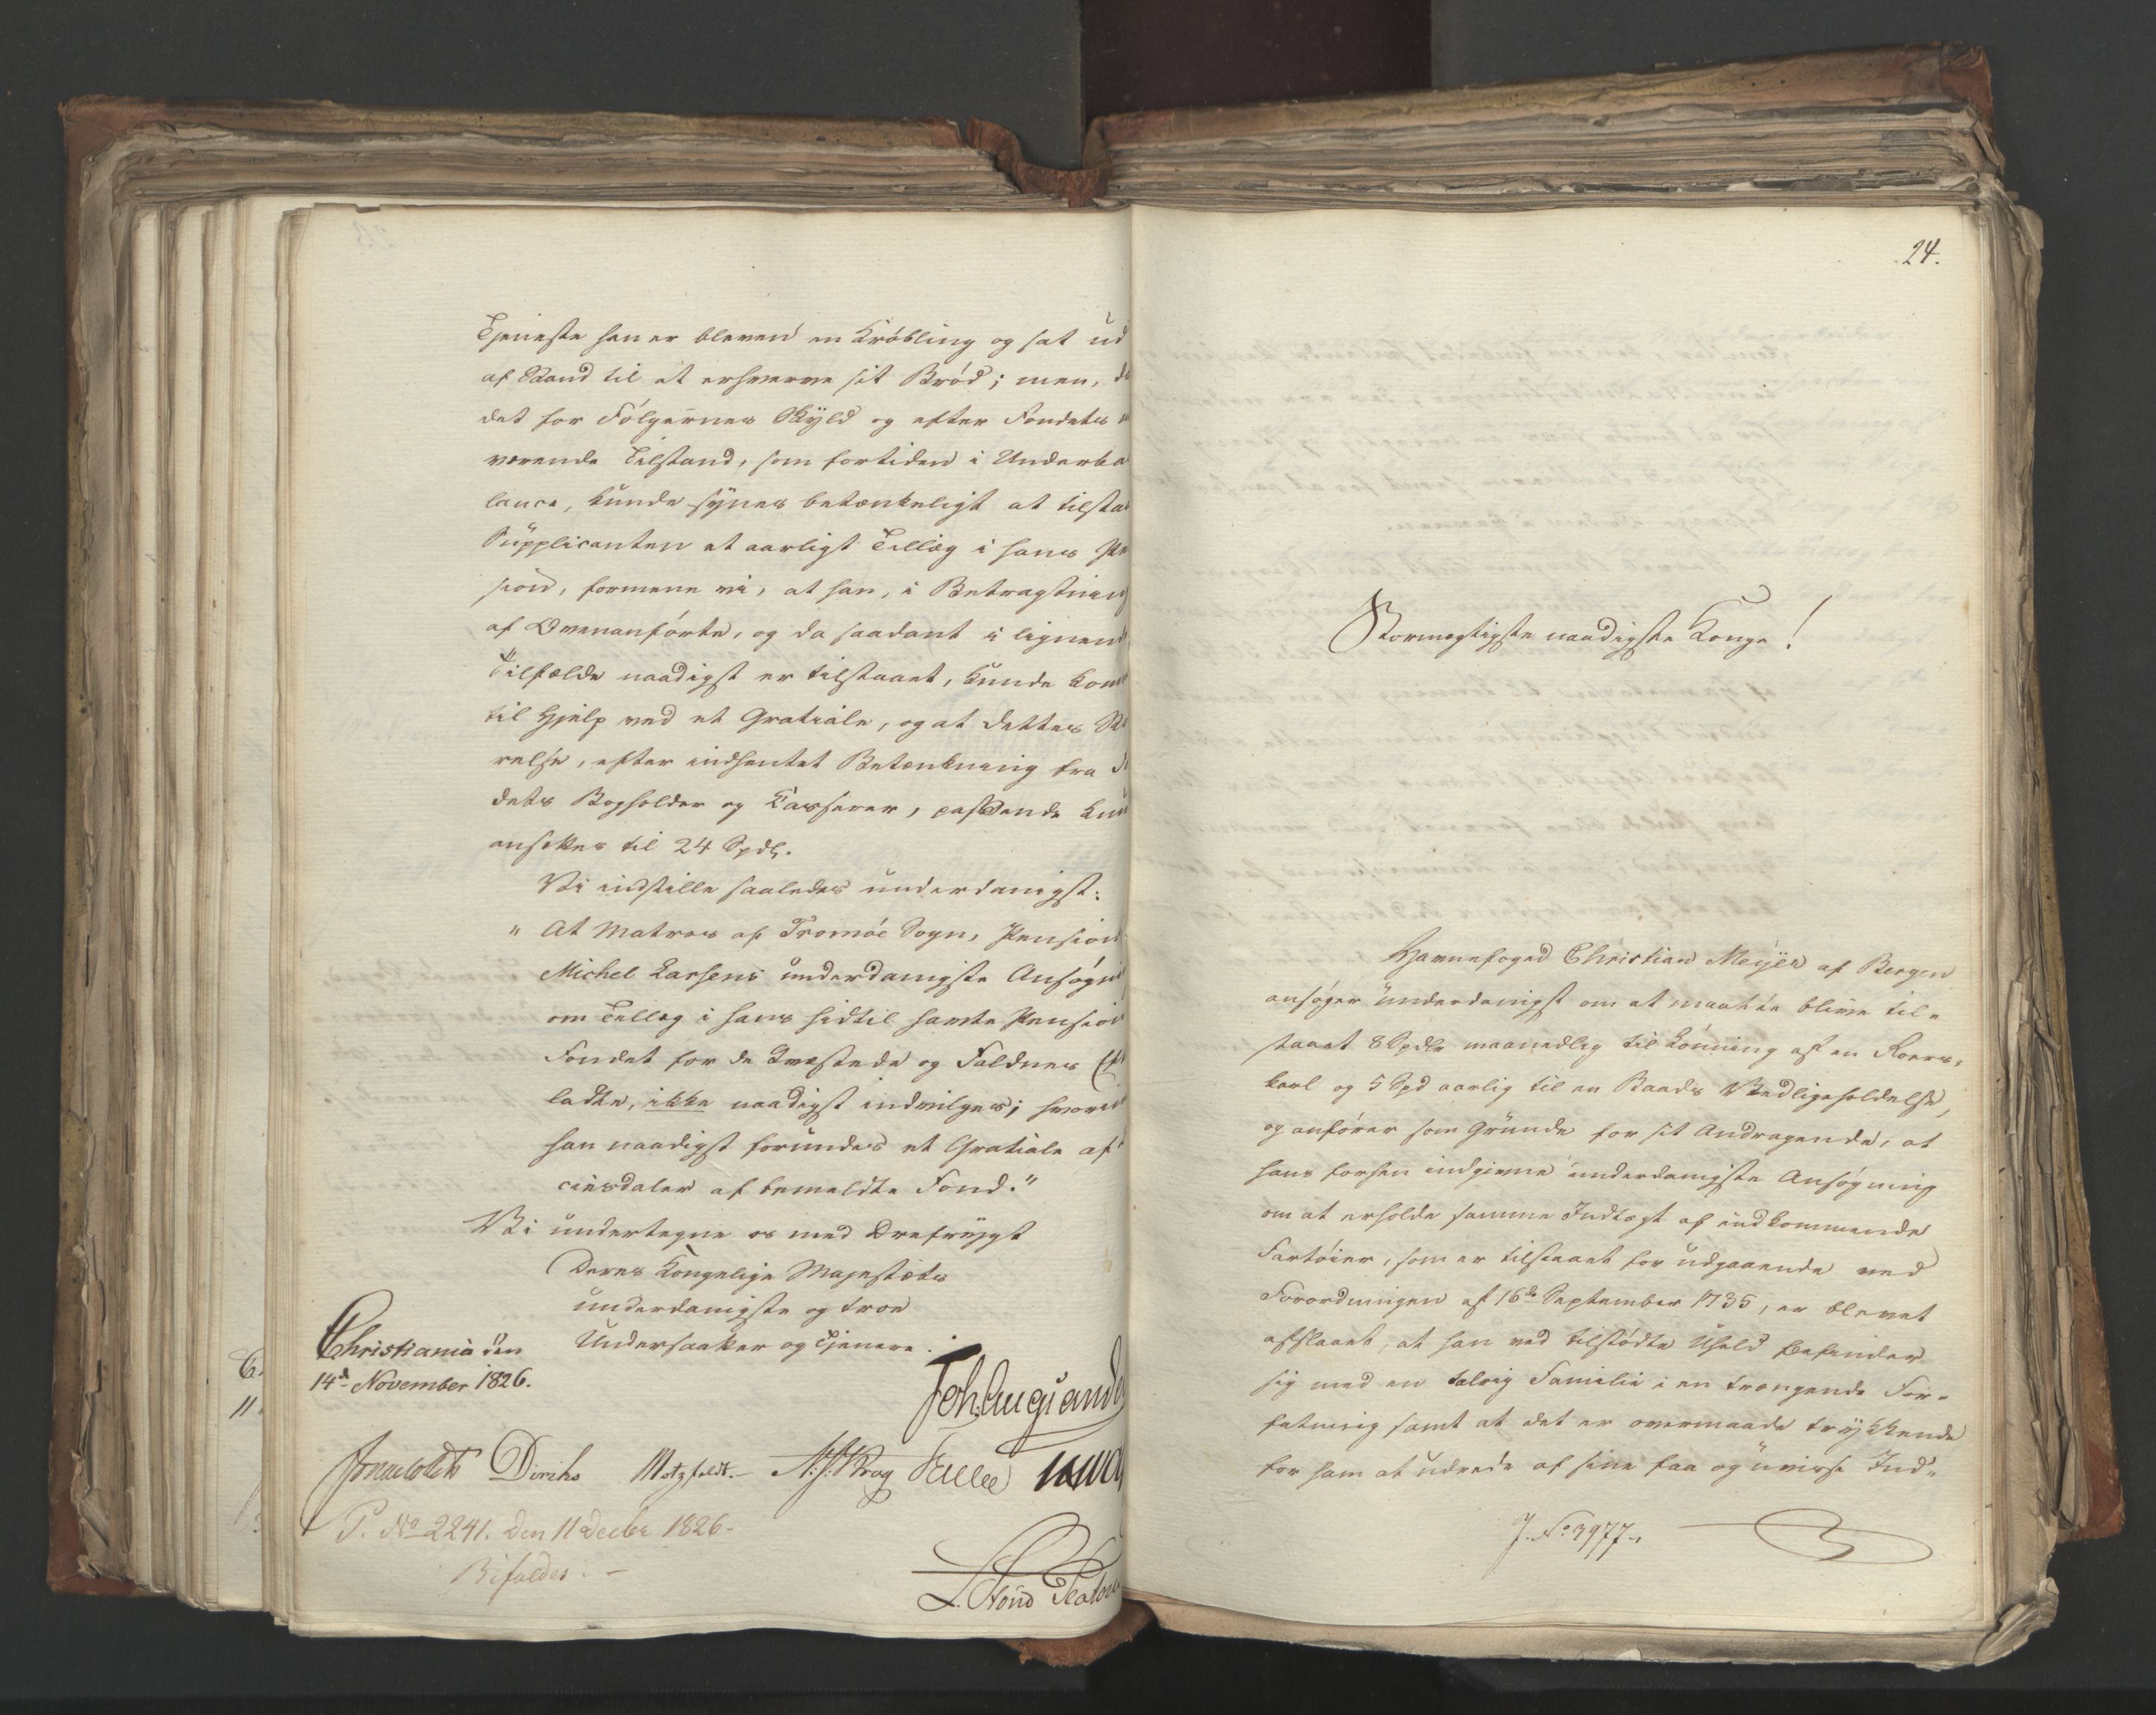 Tjeneste han er bleven en Krøbling og sat ud
af Stand til at erhverve sit Brød; men, da
det for Følgernes Skyld og efter Fondets
værende Tilstand, som fortiden i Underba
lance, kunde synes betænkeligt at tilsta
Supplicanten et aarligt Tillæg i hans Pe
sion, formene vi, at han, i Betragtning
af Ovenanførte, og da saadant i lignend
Tilfælde naadigst er tilstaaet, kunde kom
til Hjelp ved et Gratiale, og at dettes St
relse, efter indhentet Betænkning fra
dets Bogholder og Casserer, passende kun
ansættes til 24 Spdlr.
Vi indstille saaledes underdanigst:
" At Matros af Tromøe Sogn, Pension
Michel Larsens underdanigste Ansøgni
om Tillæg i hans hidtil havte Pension
Fondet for de Qvæstede og Faldnes Ef
ladte, ikke naadigst indvilges; hvorim
han naadigst forundes et Gratiale af
ciesdaler af bemeldte Fond."
Vi undertegne os med Ærefrygt
Deres Kongelige Majestæts
underdanigste og troe
Undersaatter og Tjenere.
Christiania den
14d November 1826.
Joh. Aug. Sande
Collett Diriks Motzfeldt.- Krog
P. No 2241. den 11 Decbr 1826-
Bifaldes.-
24.
Stormægtigste naadigste Konge!
Havnefoged Christian Meyer af Bergen
ansøger underdanigst om at maatte blive til=
staaet 8 Spdlr maanedlig til Lønning af en Roers=
karl og 5 Spd aarlig til en Baads Vedligeholdelse,
og anfører som Grunde for sit Andragende, at
hans forhen indgivne underdanigste Ansøgning
om at erholde samme Indtægt af indkommende
Fartøier, som er tilstaaet for udgaaende ved
Forordningen af 16de September 1735, er blevet
afslaaet, at han ved tilstødte Uheld befinder
sig med en talrig Familie i en trængende For=
fatning samt at det er overmaade trykkende
for ham at udrede af sine faa og uvisse Ind=
J. No 3977.